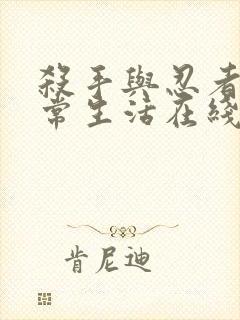 殺手與忍者
常生活在綫
肯尼迪